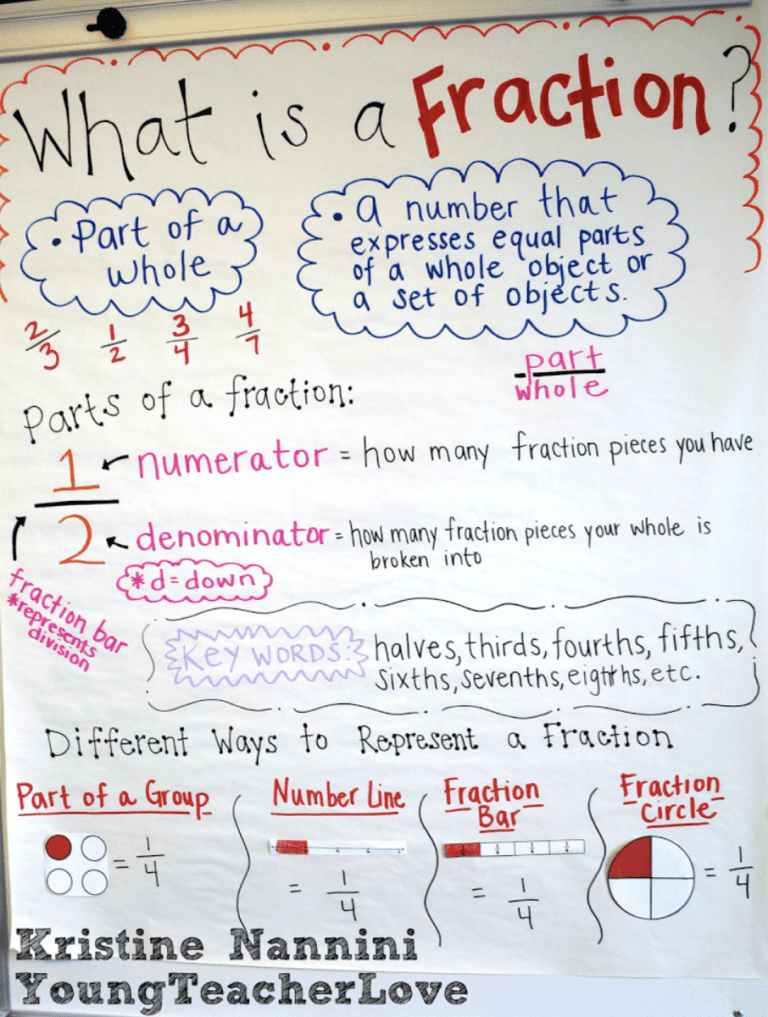 What is a Fraction?
• Part of a
whole
• a number that
expresses equal parts
of a whole object or
a set of objects.
2/3 1/2 3/4 4/7
part
whole
Parts of a fraction:
1 numerator = how many fraction pieces you have
2 denominator = how many fraction pieces your whole is
broken into
*d=down
fraction bar
*represents
division
Key Words: halves, thirds, fourths, fifths,
sixths, sevenths, eighths, etc.
Different Ways to Represent a Fraction
Part of a Group
= 1/4
Number Line
= 1/4
Fraction
Bar
= 1/4
Fraction
Circle
= 1/4
Kristine Nannini
YoungTeacherLove